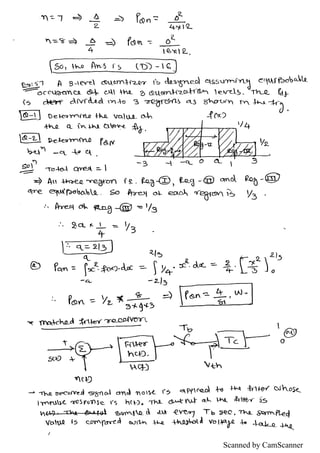 n=7 ⇒ Δ/2 ⇒ PQn = Δ²/4x12
n=8 ⇒ Δ/4 ⇒ PQn = Δ²/16x12
So, the Ans is (D)-16
A 3-level quantizer is designed assuming equiprobable
occurance of all the 3 quantization levels. The fig
is divided into 3 regions as shown in the fig.
Q-1 Determine the value of
the a in the above fig.
f(x)
1/4
Q-2 Determine PQN
betn -a to a.
1/2
Reg-I Reg-II Reg-III
-3 -1 -a 0 a 1 3
Soln Total area = 1
⇒ All three region i.e. Reg-I, Reg-II and Reg-III
are equiprobable. So Area of each region is 1/3.
∴ Area of Reg-II = 1/3
∴ 2a x 1/4 = 1/3
∴ a = 2/3
② PQn = ∫x².f(x).dx = ∫1/4.x².dx = 2/4 . [x³/3]
a -a 2/3 -2/3 2/3 0
∴ PQn = 1/2 * 8/3x9x3 ⇒ PQn = 4/81 . W.
* matched filter receiver.
S(t) + Σ + n(t)
Filter h(t). H(f)
Tb
Vth
TC
1 0
→ The received signal and noise is applied to the filter whose
impulse response is h(t). The output of the filter is
sampled at every Tb sec. The sampled
value is compared with the threshold voltage to take the
Scanned by CamScanner